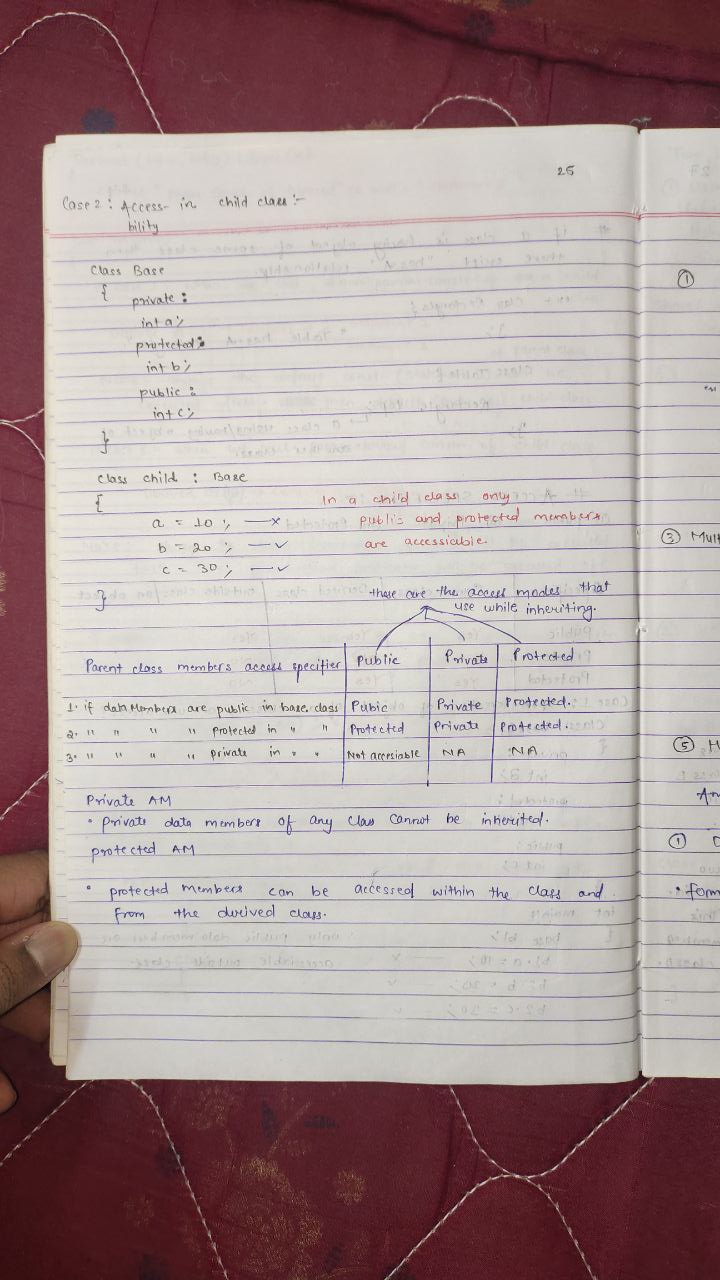 25
Case 2 : Access- in child class :-
bility
Class Base
{ private :
int a ;
protected :
int b ;
public :
int c ;
}
class child : Base
{
In a child class only
a = 10 ; — x public and protected members
b = 20 ; — ✓ are accessiable.
c = 30 ; — ✓
}
these are the access modes that
use while inheriting.
Parent class members access specifier Public Private Protected
1. if data Members are public in base class Pubic Private Protected.
2. " " " " Protected in " " Protected Private Protected.
3. " " " " private in " " Not accesiable NA NA
Private AM
• Private data members of any class cannot be inherited.
protected AM
• protected members can be accessed within the class and
from the derived class.
①
③ Mult
⑤
①
• form